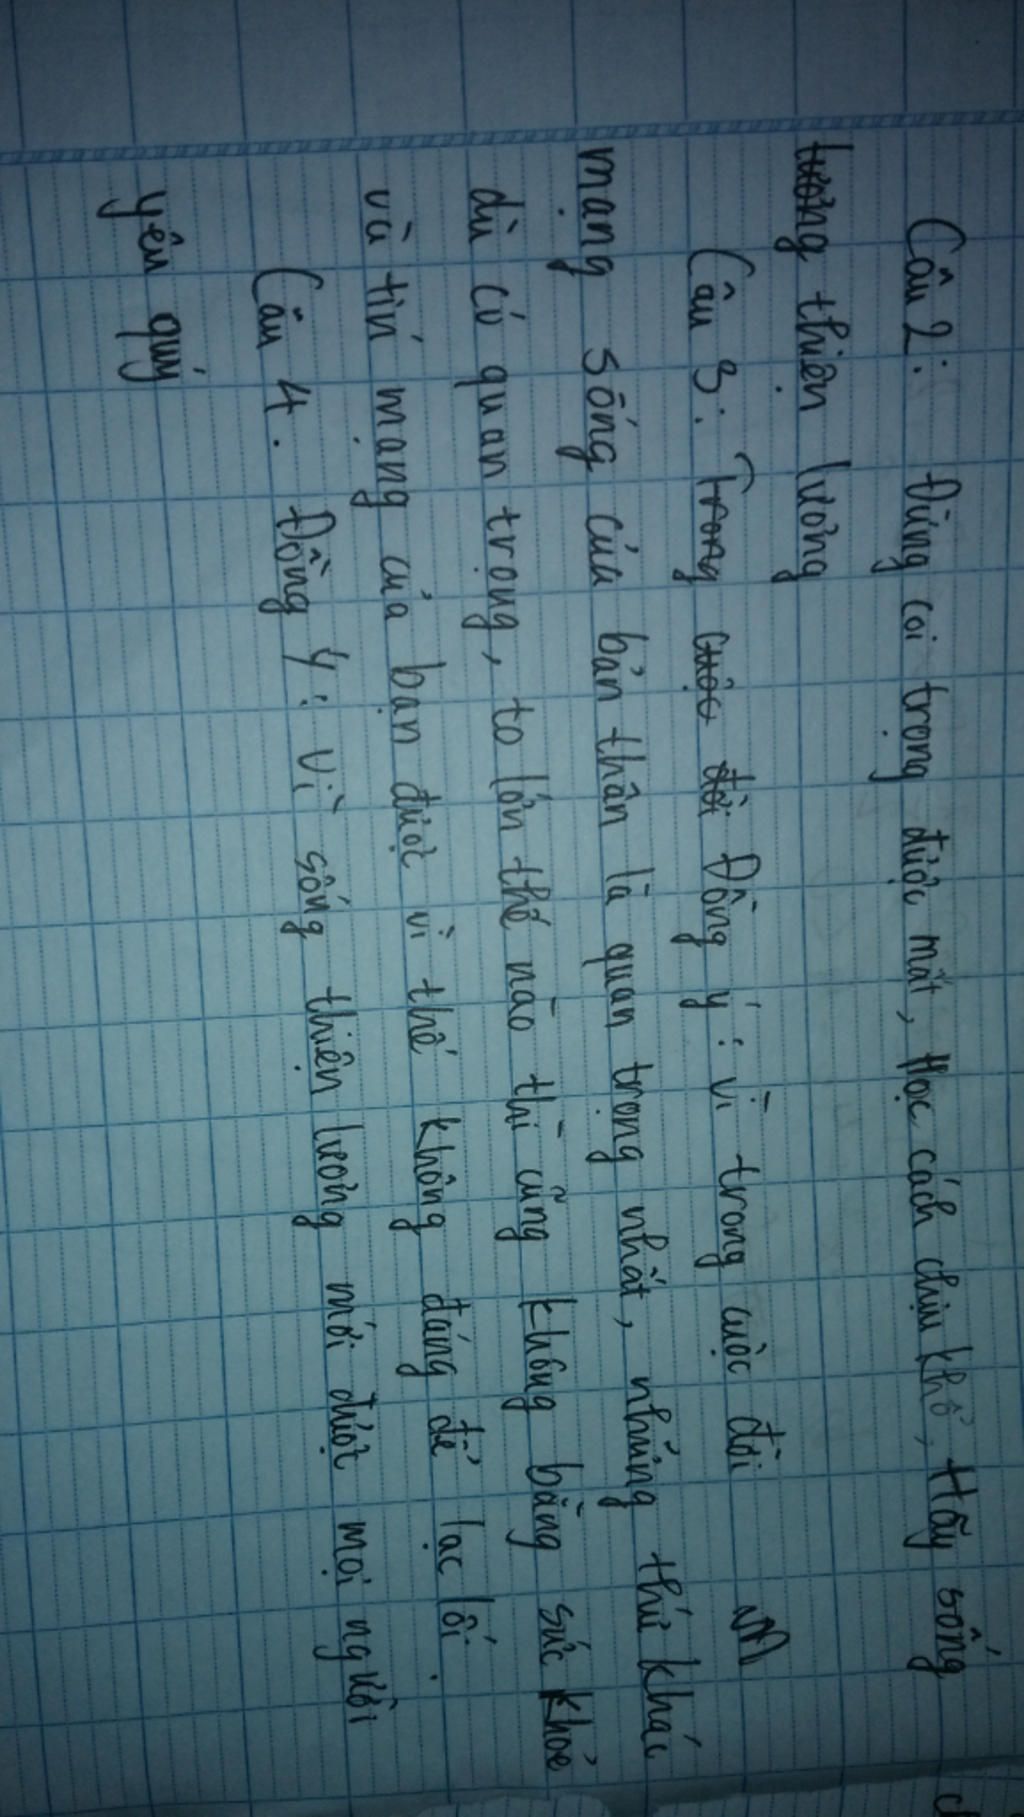 Câu 2: Đừng coi trọng được mất, Học cách chịu khổ, Hãy sống
lương thiện lương
Câu 3: Trong cuộc đời Đồng ý: vì trong cuộc đời
mạng sống của bản thân là quan trọng nhất, những thứ khác
dù có quan trọng, to lớn thế nào thì cũng không bằng sức khỏe
và tín mạng của bạn được vì thế không đáng để lạc lối.
Câu 4. Đồng ý: Vì sống thiện lương mới được mọi người
yêu quý